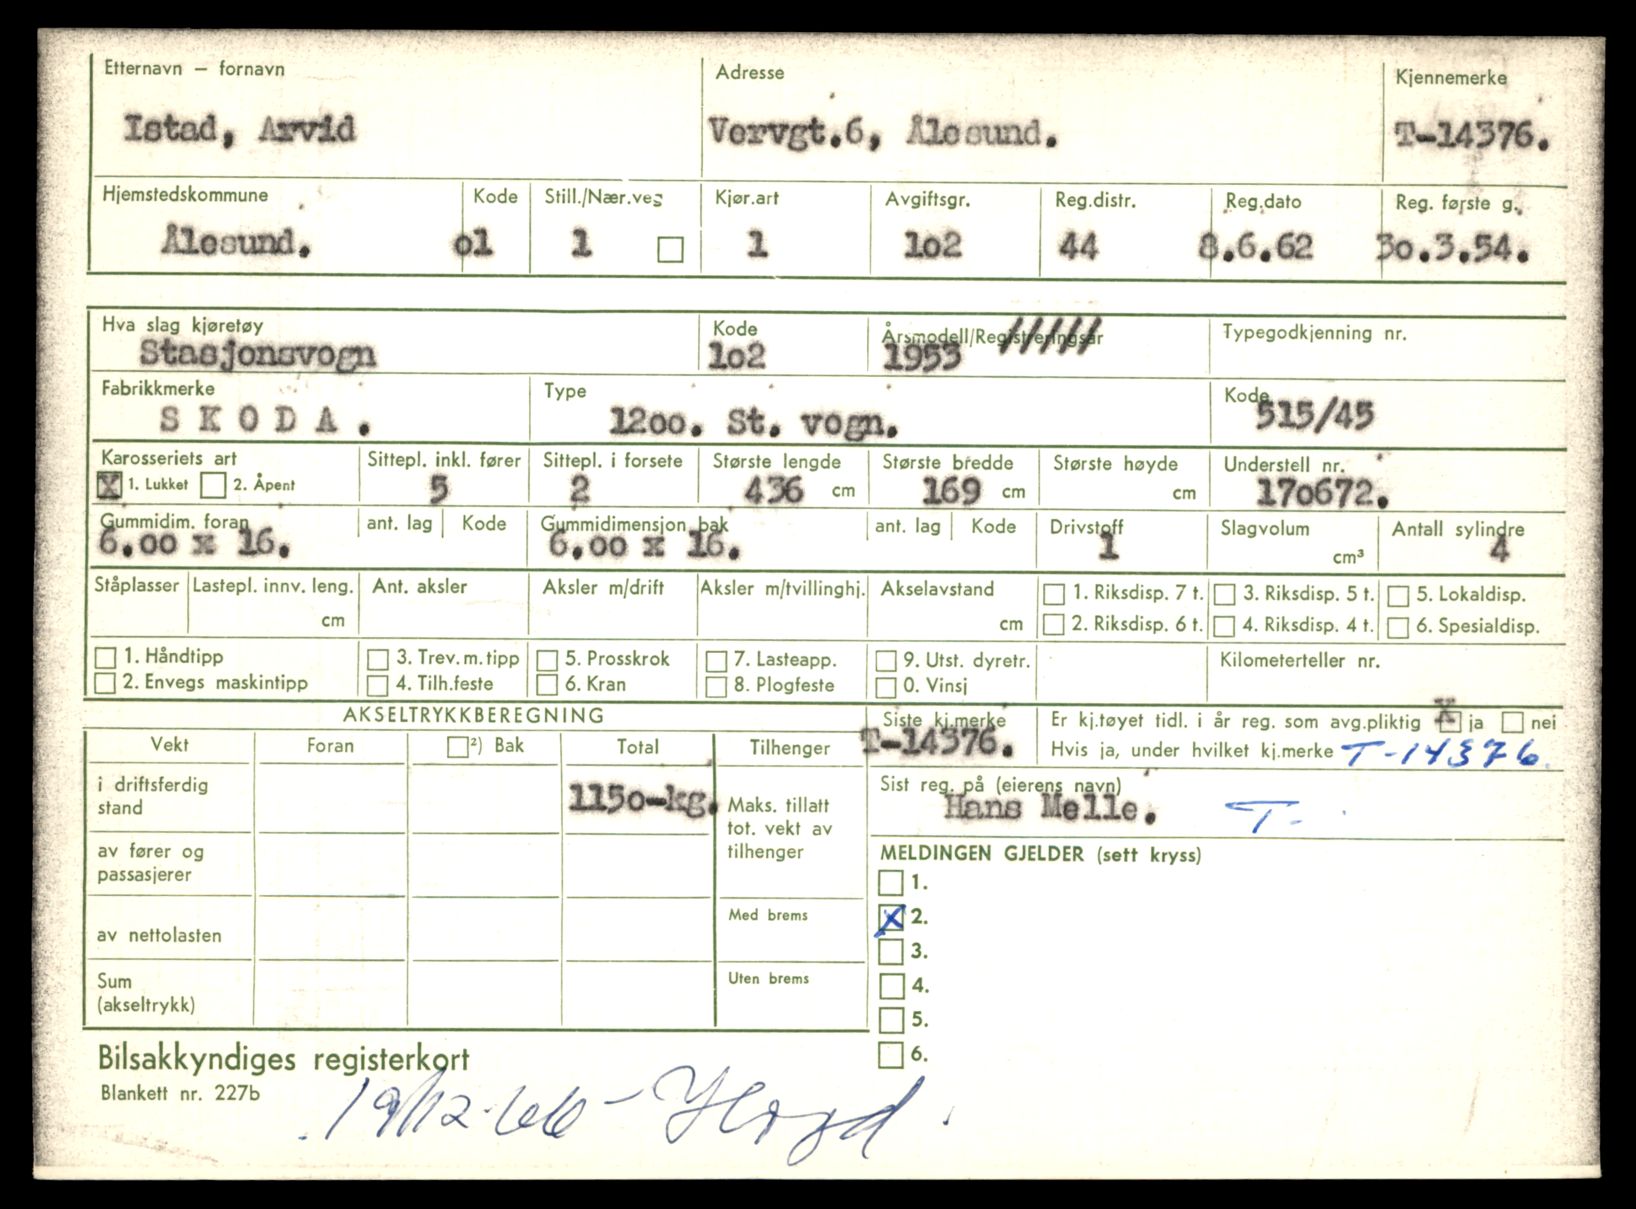 Etternavn – fornavn Adresse Kjennemerke
Istad, Arvid Vervgt.6, Ålesund. T-14376.
Hjemstedskommune Kode Still./Nær.veg Kjør.art Avgiftsgr. Reg.distr. Reg.dato Reg. første g.
Ålesund. o1 1 1 1o2 44 8.6.62 3o.3.54.
Hva slag kjøretøy Kode Årsmodell/Registreringsår Typegodkjenning nr.
Stasjonsvogn 1o2 1953 /////
Fabrikkmerke Type Kode
S K O D A . 12oo. St. vogn. 515/45
Karosseriets art Sittepl. inkl. fører Sittepl. i forsete Største lengde Største bredde Største høyde Understell nr.
X 1. Lukket 2. Åpent 5 2 436 cm 169 cm cm 17o672.
Gummidim. foran ant. lag Kode Gummidimensjon bak ant. lag Kode Drivstoff Slagvolum Antall sylindre
6.oo x 16. 6.oo x 16. 1 cm³ 4
Ståplasser Lastepl. innv. leng. Ant. aksler Aksler m/drift Aksler m/tvillinghj. Akselavstand 1. Riksdisp. 7 t. 3. Riksdisp. 5 t. 5. Lokaldisp.
cm cm 2. Riksdisp. 6 t. 4. Riksdisp. 4 t. 6. Spesialdisp.
1. Håndtipp 3. Trev.m.tipp 5. Prosskrok 7. Lasteapp. 9. Utst. dyretr. Kilometerteller nr.
2. Envegs maskintipp 4. Tilh.feste 6. Kran 8. Plogfeste 0. Vinsj
AKSELTRYKKBEREGNING Siste kj.merke Er kj.tøyet tidl. i år reg. som avg.pliktig X ja nei
Vekt Foran ²) Bak Total Tilhenger T-14376. Hvis ja, under hvilket kj.merke T-14376.
i driftsferdig stand 115o-kg. Maks. tillatt tot. vekt av tilhenger
Sist reg. på (eierens navn)
Hans Melle. T-
av fører og passasjerer
MELDINGEN GJELDER (sett kryss)
1.
av nettolasten Med brems X 2.
3.
Sum (akseltrykk) Uten brems 4.
5.
Bilsakkyndiges registerkort 6.
Blankett nr. 227b
19/12-66 –